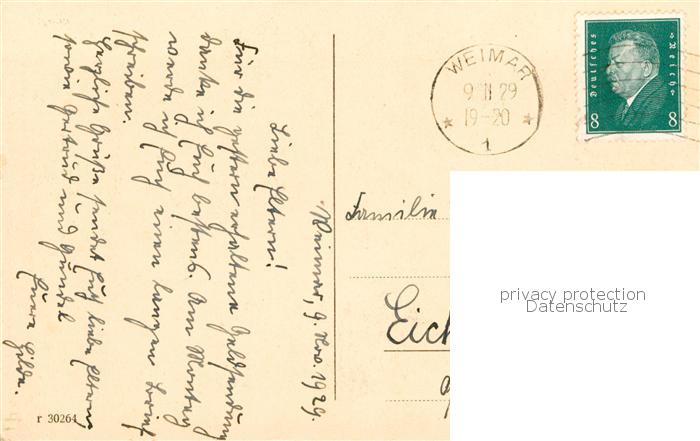 Weimar, 9. Nov. 1929.
Liebe Eltern!
Für die gestern erhaltene Geldsendung
danke ich Euch bestens. Am Montag
werde ich Euch einen langen Brief
schreiben.
Herzliche Grüße sendet Euch liebe Eltern
sowie Gertrud und
Eure Hilde.
r 30264
WEIMAR
9 11 29
19-20
* 1 *
Deutsches Reich
8 8
Familie
Eich
privacy protection
Datenschutz